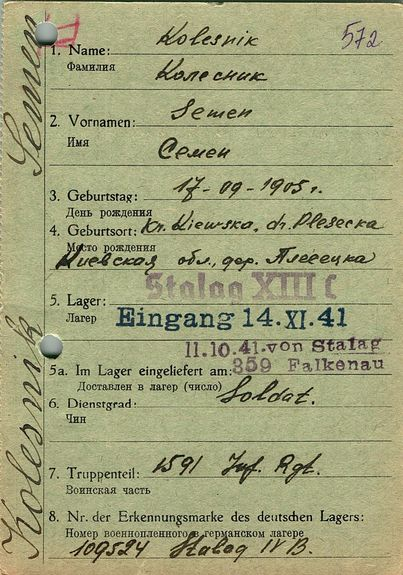 572
1. Name: Kolesnik
Фамилия Колесник
2. Vornamen: Semen
Имя Семен
3. Geburtstag: 17-09-1905 г.
День рождения
4. Geburtsort: Kr. Kiewska, dr. Plesecka
Место рождения
Киевская обл., дер. Плесецка
Stalag XIII C
5. Lager:
Лагер
Eingang 14.XI.41
11.10.41.von Stalag
359 Falkenau
5a. Im Lager eingeliefert am:
Доставлен в лагер (число)
6. Dienstgrad: Soldat.
Чин
7. Truppenteil: 1591 Inf. Rgt.
Воинская часть
8. Nr. der Erkennungsmarke des deutschen Lagers:
Номер военнопленного в германском лагере
109524 Stalag IV B.
Kolesnik Semen